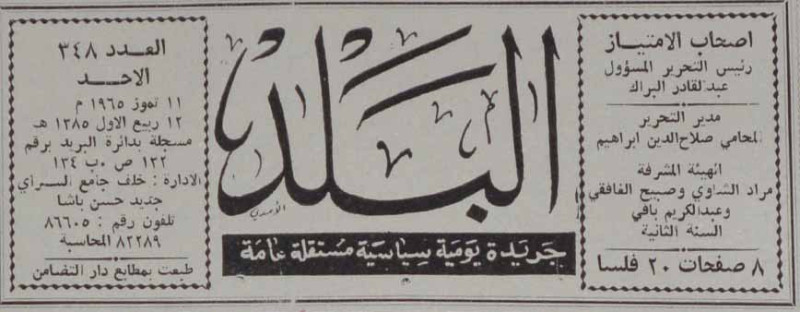 اصحاب الامتياز
رئيس التحرير المسؤول
عبدالقادر البراك
مدير التحرير
المحامي صلاح الدين ابراهيم
الهيئة المشرفة
مراد الشاوي وصبيح الغافقي
وعبدالكريم بافي
السنة الثانية
٨ صفحات ٢٠ فلسا
البلد
جريدة يومية سياسية مستقلة عامة
العدد ٣٤٨
الاحد
١١ تموز ١٩٦٥ م
١٢ ربيع الاول ١٣٨٥ هـ
مسجلة بدائرة البريد برقم
١٣٢ ص ٠ب ١٣٤
الادارة : خلف جامع السراي
جديد حسن باشا
تلفون رقم : ٨٦٦٠٥
٨٢٢٨٩ المحاسبة
طبعت بمطابع دار التضامن